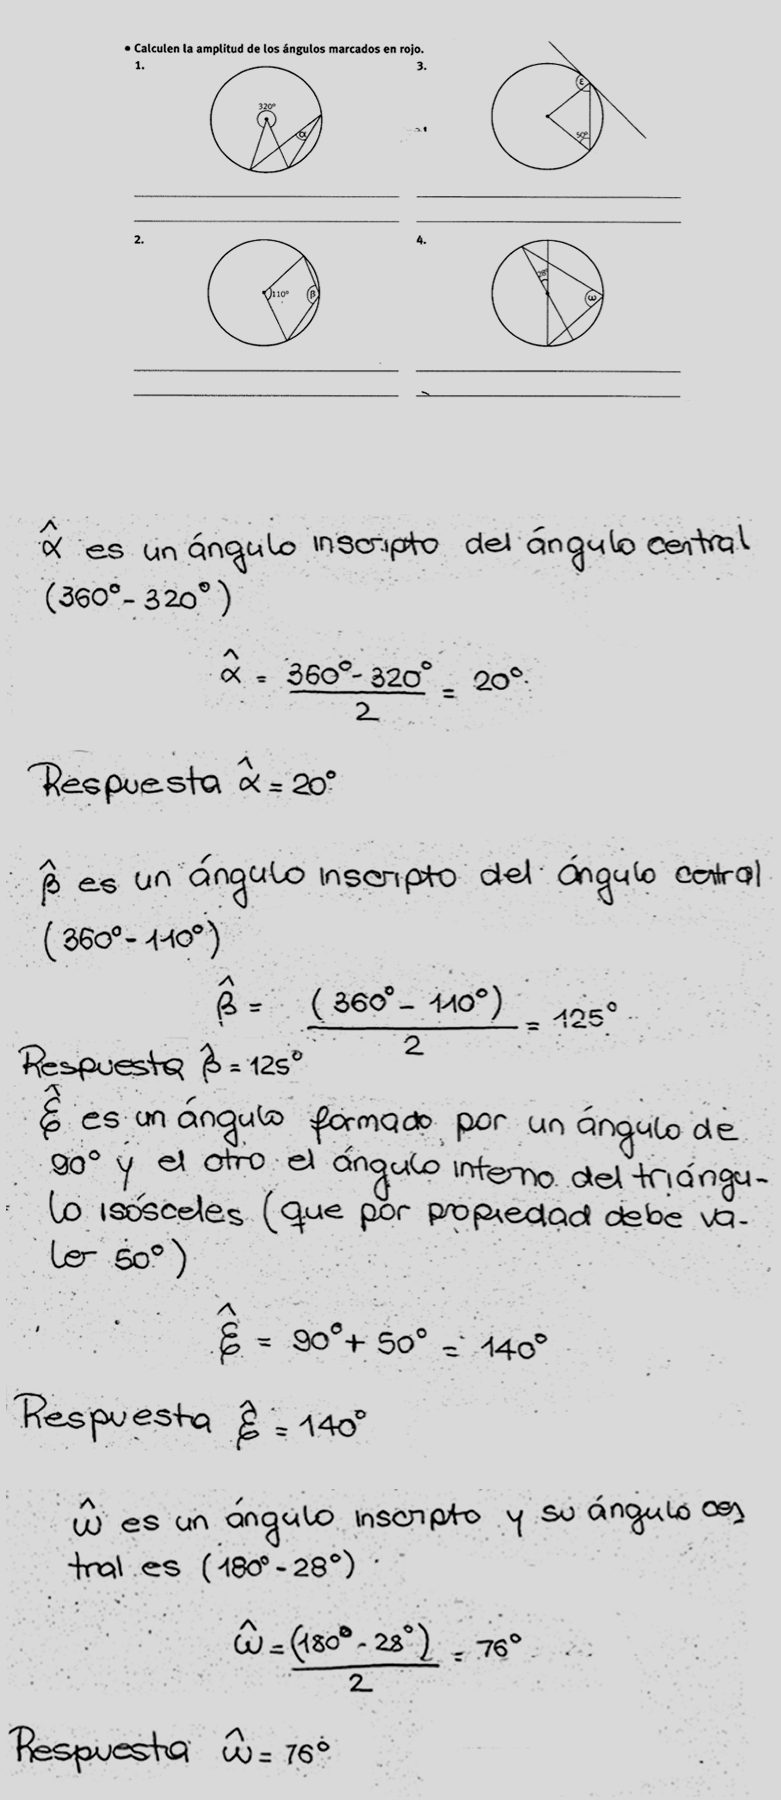 • Calculen la amplitud de los ángulos marcados en rojo.
1.
320°
α
3.
ε
50°
2.
110°
β
4.
28°
ω
α̂ es un ángulo inscripto del ángulo central
(360° - 320°)
α̂ = (360° - 320°) / 2 = 20°.
Respuesta α̂ = 20°
β̂ es un ángulo inscripto del ángulo cetral
(360° - 110°)
β̂ = (360° - 110°) / 2 = 125°
Respuesta β̂ = 125°
ε̂ es un ángulo formado por un ángulo de
90° y el otro el ángulo interno del triángu-
lo isósceles (que por propiedad debe va-
ler 50°)
ε̂ = 90° + 50° = 140°
Respuesta ε̂ = 140°
ω̂ es un ángulo inscripto y su ángulo cen
tral es (180° - 28°)
ω̂ = (180° - 28°) / 2 = 76°
Respuesta ω̂ = 76°